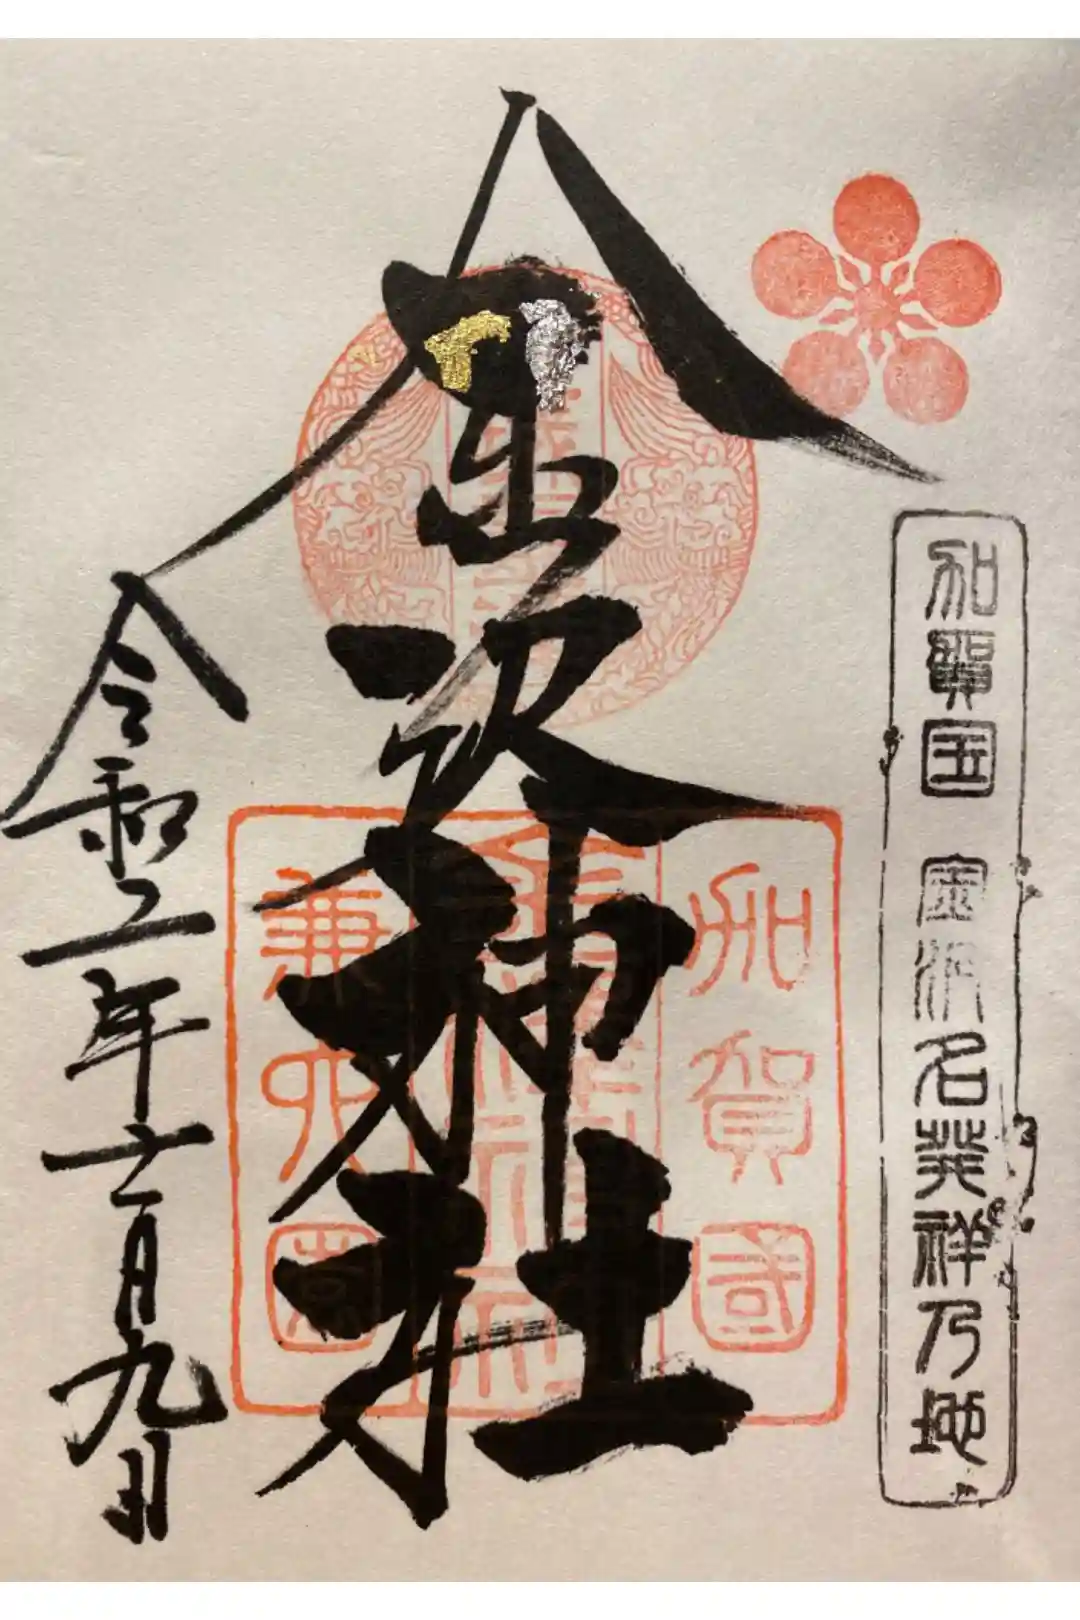 加賀国 金沢名発祥乃地
金沢神社
加賀國
金澤神社
兼六園
令和二年十二月九日